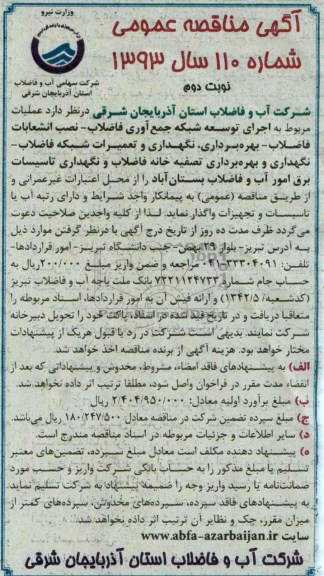 وزارت نیرو
شرکت سهامی آب و فاضلاب
استان آذربایجان شرقی
آگهی مناقصه عمومی
شماره ۱۱۰ سال ۱۳۹۳
نوبت دوم
شرکت آب و فاضلاب استان آذربایجان شرقی درنظر دارد عملیات
مربوط به اجرای توسعه شبکه جمع‌آوری فاضلاب- نصب انشعابات
فاضلاب- بهره‌برداری، نگهداری و تعمیرات شبکه فاضلاب-
نگهداری و بهره‌برداری تصفیه خانه فاضلاب و نگهداری تاسیسات
برق امور آب و فاضلاب بستان‌آباد را از محل اعتبارات غیرعمرانی و
از طریق مناقصه (عمومی) به پیمانکار واجد شرایط و دارای رتبه آب یا
تاسیسات و تجهیزات واگذار نماید. لذا از کلیه واجدین صلاحیت دعوت
می‌گردد ظرف مدت ده روز از تاریخ درج آگهی با درنظر گرفتن موارد ذیل
به آدرس تبریز- بلوار ۲۹ بهمن- جنب دانشگاه تبریز- امور قراردادها-
تلفن: ۰۴۱۳۳۳۰۴۰۹۱ مراجعه و ضمن واریز مبلغ ۲۰۰/۰۰۰ ریال به
حساب جام شماره ۷۲۲۱۱۲۴۷۳۳ بانک ملت باجه آب و فاضلاب تبریز
(کدشعبه/ ۱۳۴۲/۵) و ارائه فیش آن به امور قراردادها، اسناد مربوطه را
متعاقبا دریافت و در تاریخ قید شده در اسناد، پاکت خود را تحویل دبیرخانه
شرکت نمایند. بدیهی است شرکت در رد یا قبول هریک از پیشنهادات
مختار خواهد بود. هزینه آگهی از برنده مناقصه اخذ خواهد شد.
الف) به پیشنهادهای فاقد امضاء، مشروط، مخدوش و پیشنهاداتی که بعد از
انقضاء مدت مقرر در فراخوان واصل شود، مطلقا ترتیب اثر داده نخواهد شد.
ب) مبلغ برآورد اولیه معادل: ۲/۴۰۴/۹۵۰/۰۰۰ ریال
ج) مبلغ سپرده تضمین شرکت در مناقصه معادل ۱۸۰/۲۴۷/۵۰۰ ریال می‌باشد.
د) سایر اطلاعات و جزئیات مربوطه در اسناد مناقصه مندرج است.
ه) پیشنهاد دهنده مکلف است معادل مبلغ سپرده، تضمین‌های معتبر
تسلیم یا مبلغ مذکور را به حساب بانکی شرکت واریز و حسب مورد
ضمانت‌نامه یا رسید واریز وجه را ضمیمه پیشنهاد به شرکت تسلیم نماید
به پیشنهادهای فاقد سپرده، سپرده‌های مخدوش، سپرده‌های کمتر از
میزان مقرر، چک و نظایر آن ترتیب اثر داده نخواهد شد.
سایت www.abfa-azarbaijan.ir
شرکت آب و فاضلاب استان آذربایجان شرقی